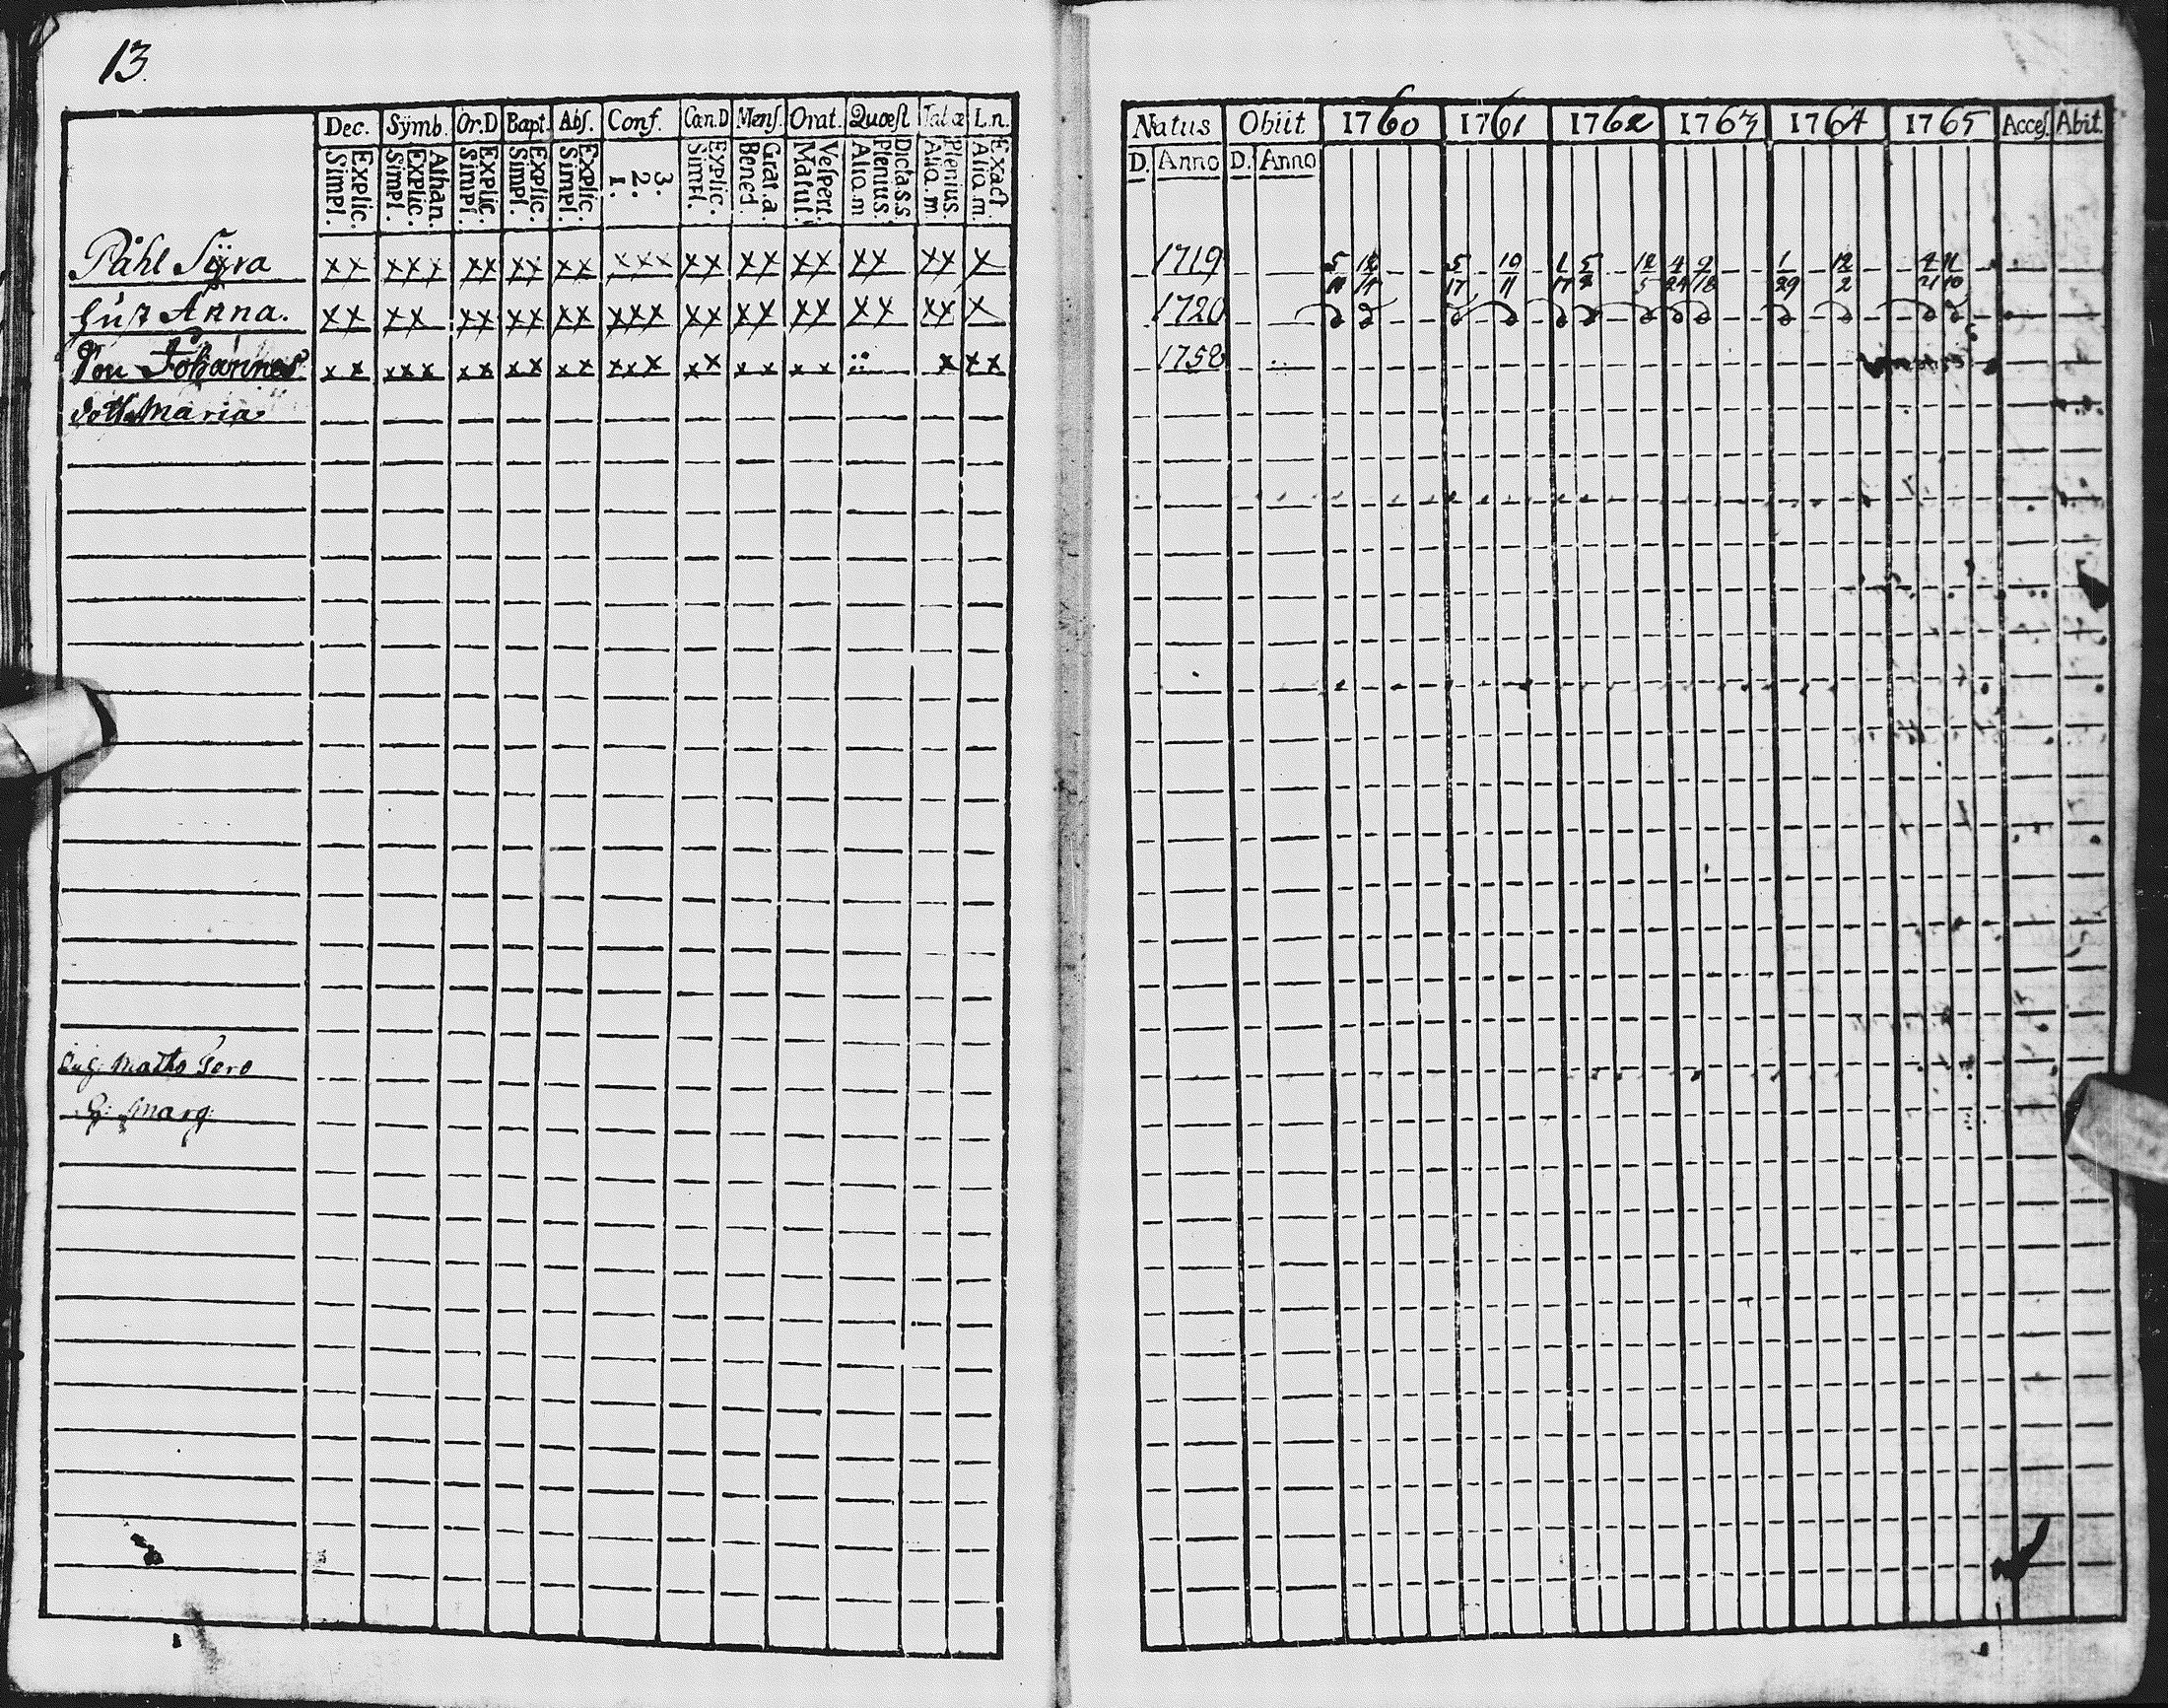 13.
Dec. Sÿmb. Or.D Bapt. Abſ. Conf. Can.D Menſ. Orat. Quœſt Tabæ L.n.
Explic. Simpl. Athan. Explic. Simpl. Explic. Simpl. Explic. Simpl. Explic. Simpl. 3. 2. 1. Explic. Simpl. Grat.a. Bened. Veſpert. Matut. Dicta.s.s. Plenius. Alio.m Plenius. Alio.m Exact. Alio.m.
Påhl Sÿra xx xxx xx xx xx xxx xx xx xx xx xx x
Hust Anna. xx xx xx xx xx xxx xx xx xx xx xx x
Son Johannes xx xxx xx xx xx xxx xx xx xx x xx
Dott Maria
Matts Pers
H: Marg:
Natus Obiit 1760 1761 1762 1763 1764 1765 Acceſ. Abit.
D. Anno D. Anno
1719 5 12 5 10 1 5 12 4 9 1 12 4 11
17 11 17 5 29 2 21 10
1720
1758